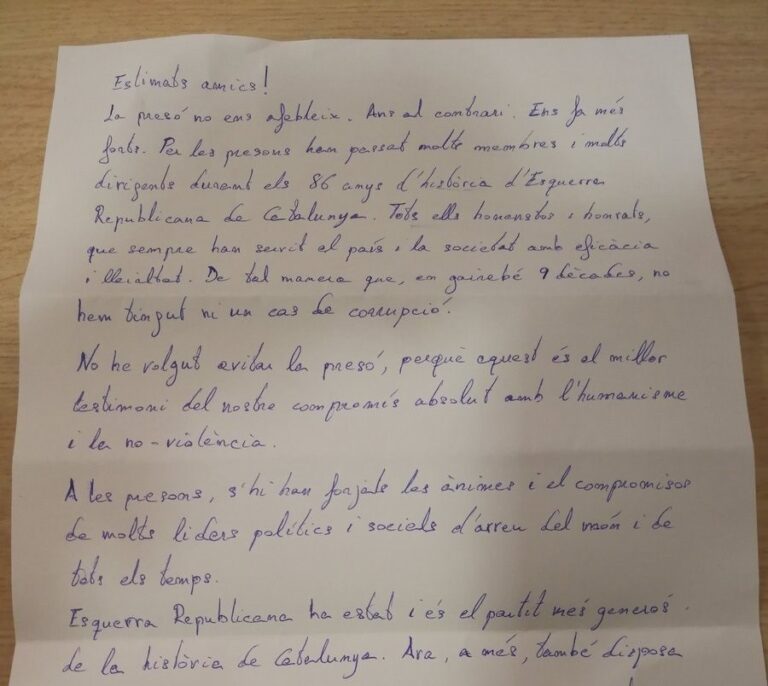 Estimats amics!
La presó no ens afebleix. Ans al contrari. Ens fa més
forts. Per les presons han passat molts membres i molts
dirigents durant els 86 anys d'història d'Esquerra
Republicana de Catalunya. Tots ells honenstos i honrats,
que sempre han servit el país i la societat amb eficàcia
i lleialtat. De tal manera que, en gairebé 9 dècades, no
hem tingut ni un cas de corrupció.
No he volgut evitar la presó, perquè aquest és el millor
testimoni del nostre compromís absolut amb l'humanisme
i la no-violència.
A les presons, s'hi han forjats les ànimes i el compromisos
de molts líders polítics i socials d'arreu del món i de
tots els temps.
Esquerra Republicana ha estat i és el partit més generós
de la història de Catalunya. Ara, a més, també disposa